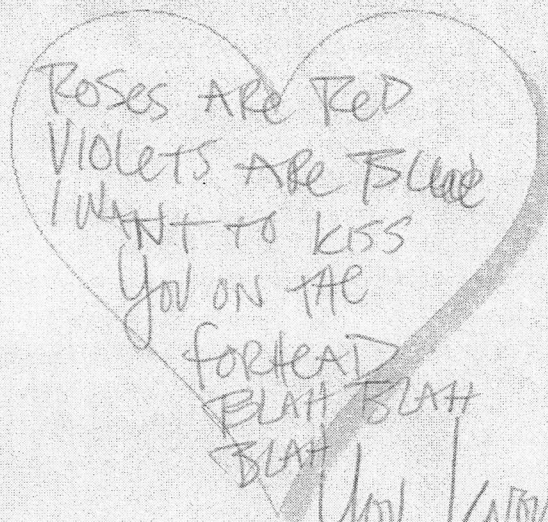 Roses ARe ReD
VIOleTS ARe Blue
I WANT TO kISS
YOU ON THe
FORHeAD
BLAH BLAH
BLAH
You Know